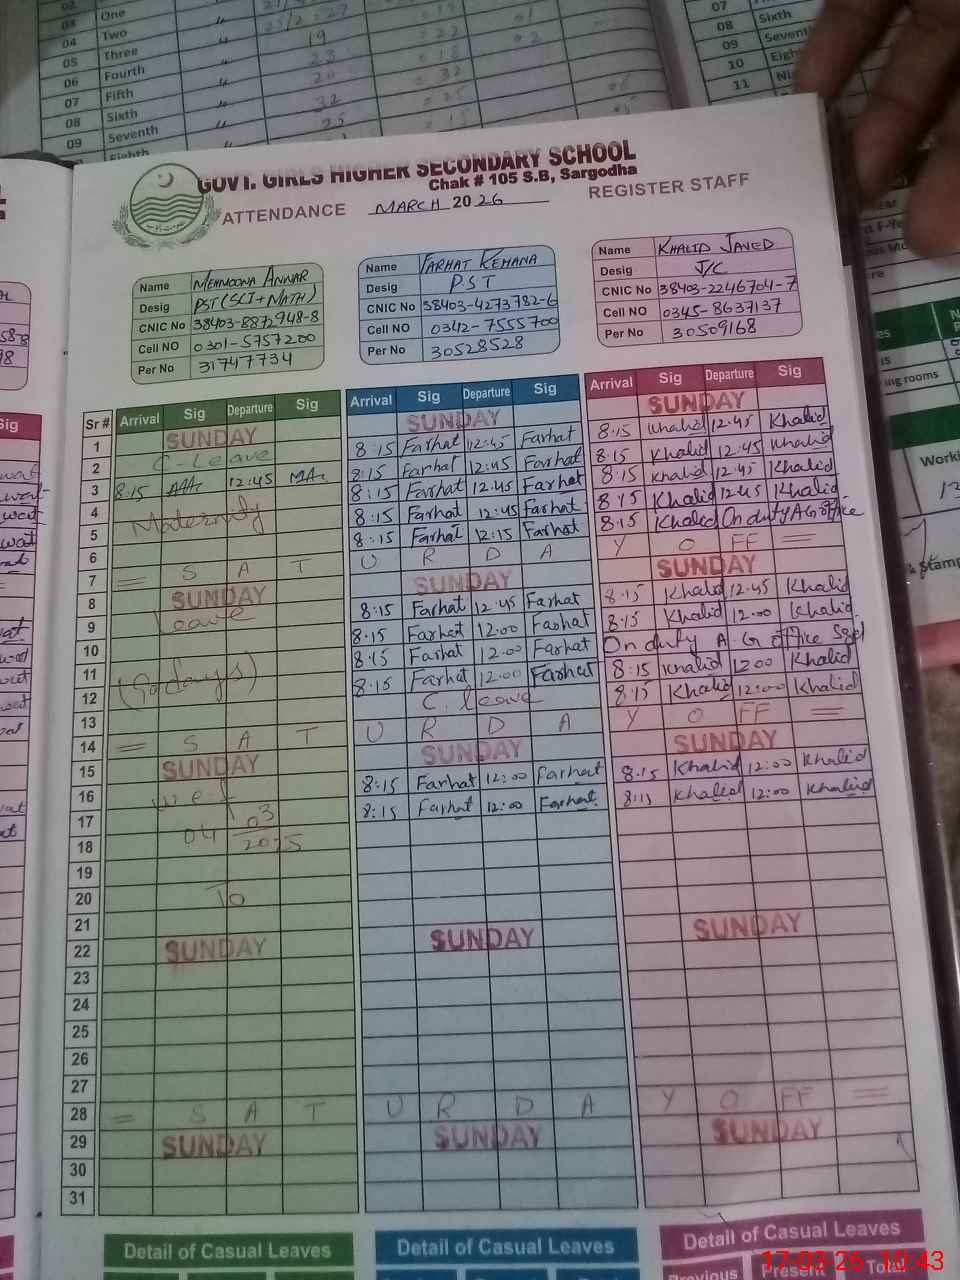 One
04 Two " 19
05 Three " 23
06 Fourth " 20
07 Fifth " 32
08 Sixth " 25
09 Seventh
Eighth
07
08 Sixth
09 Seventh
10 Eigh
11 Nin
GOVT. GIRLS HIGHER SECONDARY SCHOOL
Chak # 105 S.B, Sargodha
ATTENDANCE MARCH 2026 REGISTER STAFF
Name MEHMOONA ANWAR
Desig PST (SCI+MATH)
CNIC No 38403-8872948-8
Cell NO 0301-5757200
Per No 31747734
Name FARHAT REHANA
Desig PST
CNIC No 38403-4273782-6
Cell NO 0342-7555700
Per No 30528528
Name KHALID JAVED
Desig J/C
CNIC No 38403-2246704-7
Cell NO 0345-8637137
Per No 30509168
Sr # Arrival Sig Departure Sig Arrival Sig Departure Sig Arrival Sig Departure Sig
1 SUNDAY SUNDAY SUNDAY
2 C-Leave 8:15 Farhat 12:45 Farhat 8:15 Khalid 12:45 Khalid
3 8:15 12:45 8:15 Farhat 12:45 Farhat 8:15 Khalid 12:45 Khalid
4 Maternity 8:15 Farhat 12:45 Farhat 8:15 Khalid 12:45 Khalid
5 8:15 Farhat 12:45 Farhat 8:15 Khalid 12:45 Khalid
6 8:15 Farhat 12:15 Farhat 8:15 Khaled On duty AG office
7 = S A T U R D A Y O FF =
8 SUNDAY SUNDAY SUNDAY
9 Leave 8:15 Farhat 12:45 Farhat 8:15 Khalid 12:45 Khalid
10 8:15 Farhat 12:00 Farhat 8:15 Khalid 12:00 Khalid
11 (90 days) 8:15 Farhat 12:00 Farhat On duty A G office Sgd
12 8:15 Farhat 12:00 Farhat 8:15 Khalid 12:00 Khalid
13 C. leave 8:15 Khalid 12:00 Khalid
14 = S A T U R D A Y O FF =
15 SUNDAY SUNDAY SUNDAY
16 w.e.f 8:15 Farhat 12:00 Farhat 8:15 Khalid 12:00 Khalid
17 04 03 8:15 Farhat 12:00 Farhat 8:15 Khalid 12:00 Khalid
18 2025
19
20 To
21
22 SUNDAY SUNDAY SUNDAY
23
24
25
26
27
28 = S A T U R D A Y O FF =
29 SUNDAY SUNDAY SUNDAY
30
31
Detail of Casual Leaves Detail of Casual Leaves Detail of Casual Leaves
Previous Present Total
ing rooms
Worki
Stamp
17-03-26 10:43